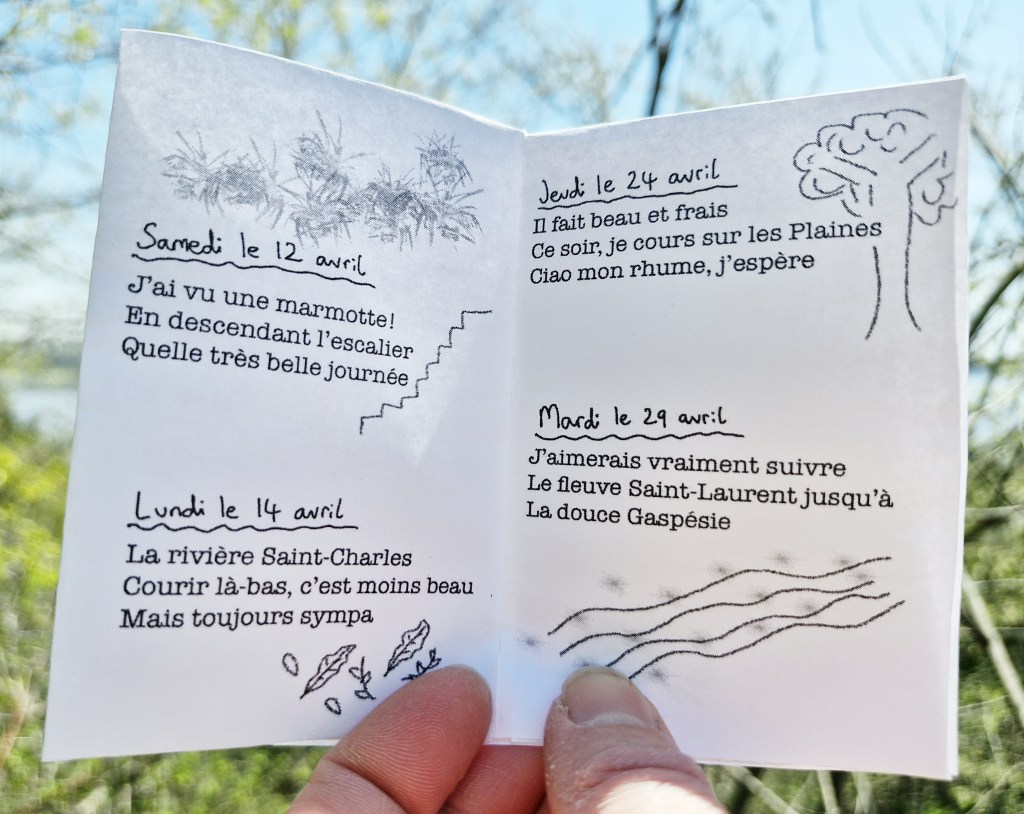 Samedi le 12 avril
J'ai vu une marmotte!
En descendant l'escalier
Quelle très belle journée
Lundi le 14 avril
La rivière Saint-Charles
Courir là-bas, c'est moins beau
Mais toujours sympa
Jeudi le 24 avril
Il fait beau et frais
Ce soir, je cours sur les Plaines
Ciao mon rhume, j'espère
Mardi le 29 avril
J'aimerais vraiment suivre
Le fleuve Saint-Laurent jusqu'à
La douce Gaspésie